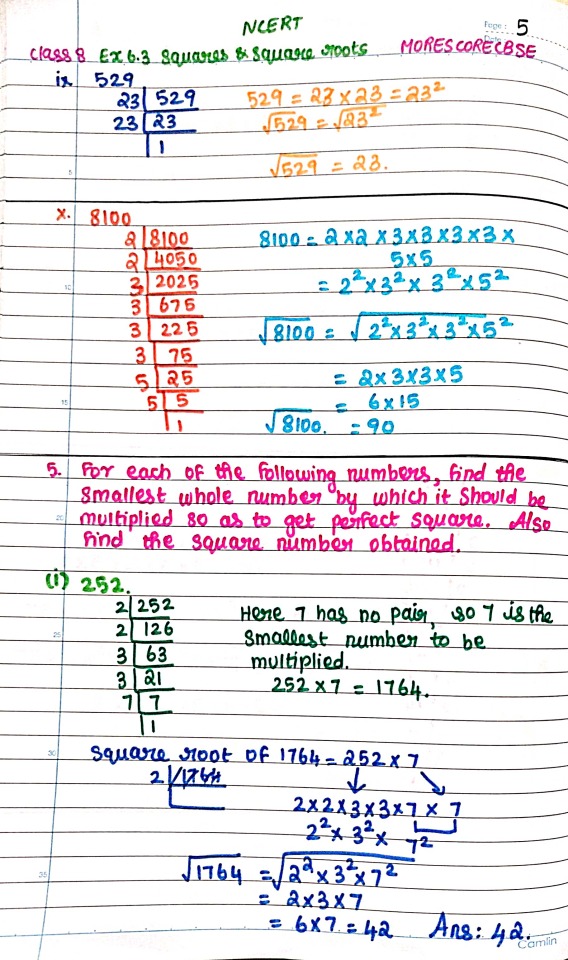 NCERT
Page: 5
Date:
Class 8 Ex 6.3 Squares & Square roots MORESCORECBSE
ix 529
23 529
23 23
1
529 = 23 × 23 = 23²
√529 = √23²
√529 = 23.
x. 8100
2 8100
2 4050
3 2025
3 675
3 225
3 75
5 25
5 5
1
8100 = 2 × 2 × 3 × 3 × 3 × 3 ×
5 × 5
= 2² × 3² × 3² × 5²
√8100 = √2² × 3² × 3² × 5²
= 2 × 3 × 3 × 5
= 6 × 15
√8100. = 90
5. For each of the following numbers, find the
smallest whole number by which it should be
multiplied so as to get perfect square. Also
find the square number obtained.
(i) 252.
2 252
2 126
3 63
3 21
7 7
1
Here 7 has no pair, so 7 is the
smallest number to be
multiplied.
252 × 7 = 1764.
Square root of 1764 = 252 × 7
2 1764
2 × 2 × 3 × 3 × 7 × 7
2² × 3² × 7²
√1764 = √2² × 3² × 7²
= 2 × 3 × 7
= 6 × 7 = 42 Ans: 42.
Camlin
5
10
15
20
25
30
35